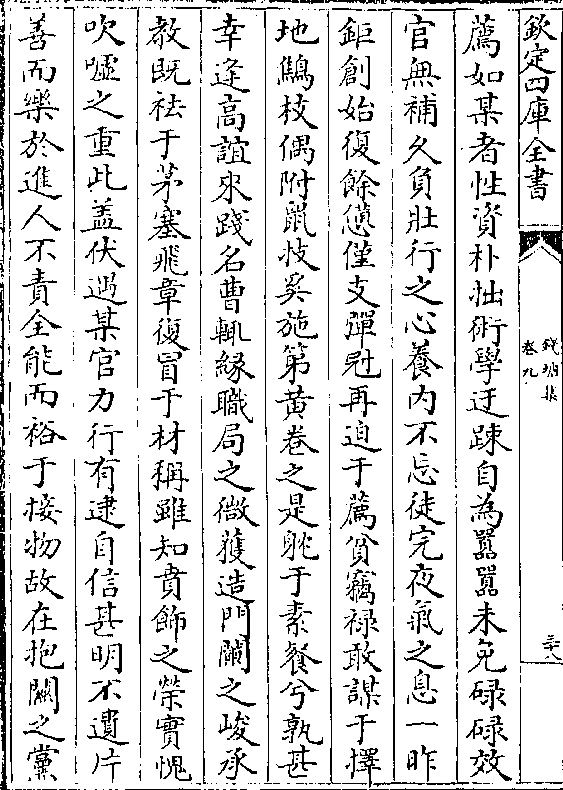 欽定四庫全書
錢塘集
卷九
三十八
薦如某者性資朴拙術學迂疎自為嚚嚚未免碌碌效
官無補久負壯行之心養内不忘徒完夜氣之息一昨
鉅創始復餘僅支彈冠再迫于薦貧竊禄敢謀于擇
地鷦枝偶附鼠技奚施第黄卷之是躭于素餐兮孰甚
幸逢高誼來踐名曹輒緣職局之微獲造門闌之峻承
教既祛于茅塞飛章復冒于材稱雖知賁飾之榮實愧
吹嘘之重此盖伏遇某官力行有逮自信甚明不遺片
善而樂於進人不責全能而裕于接物故在抱關之黨